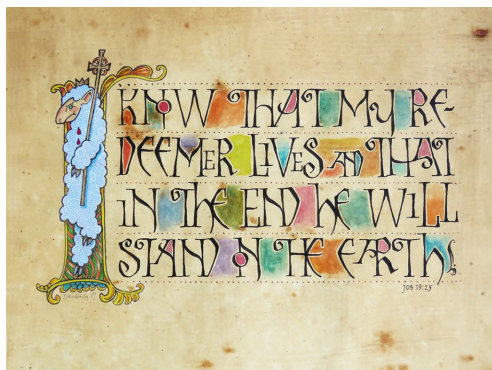 I KNOW THAT MY RE-
DEEMER LIVES AND THAT
IN THE END HE WILL
STAND ON THE EARTH!
JOB 19:25